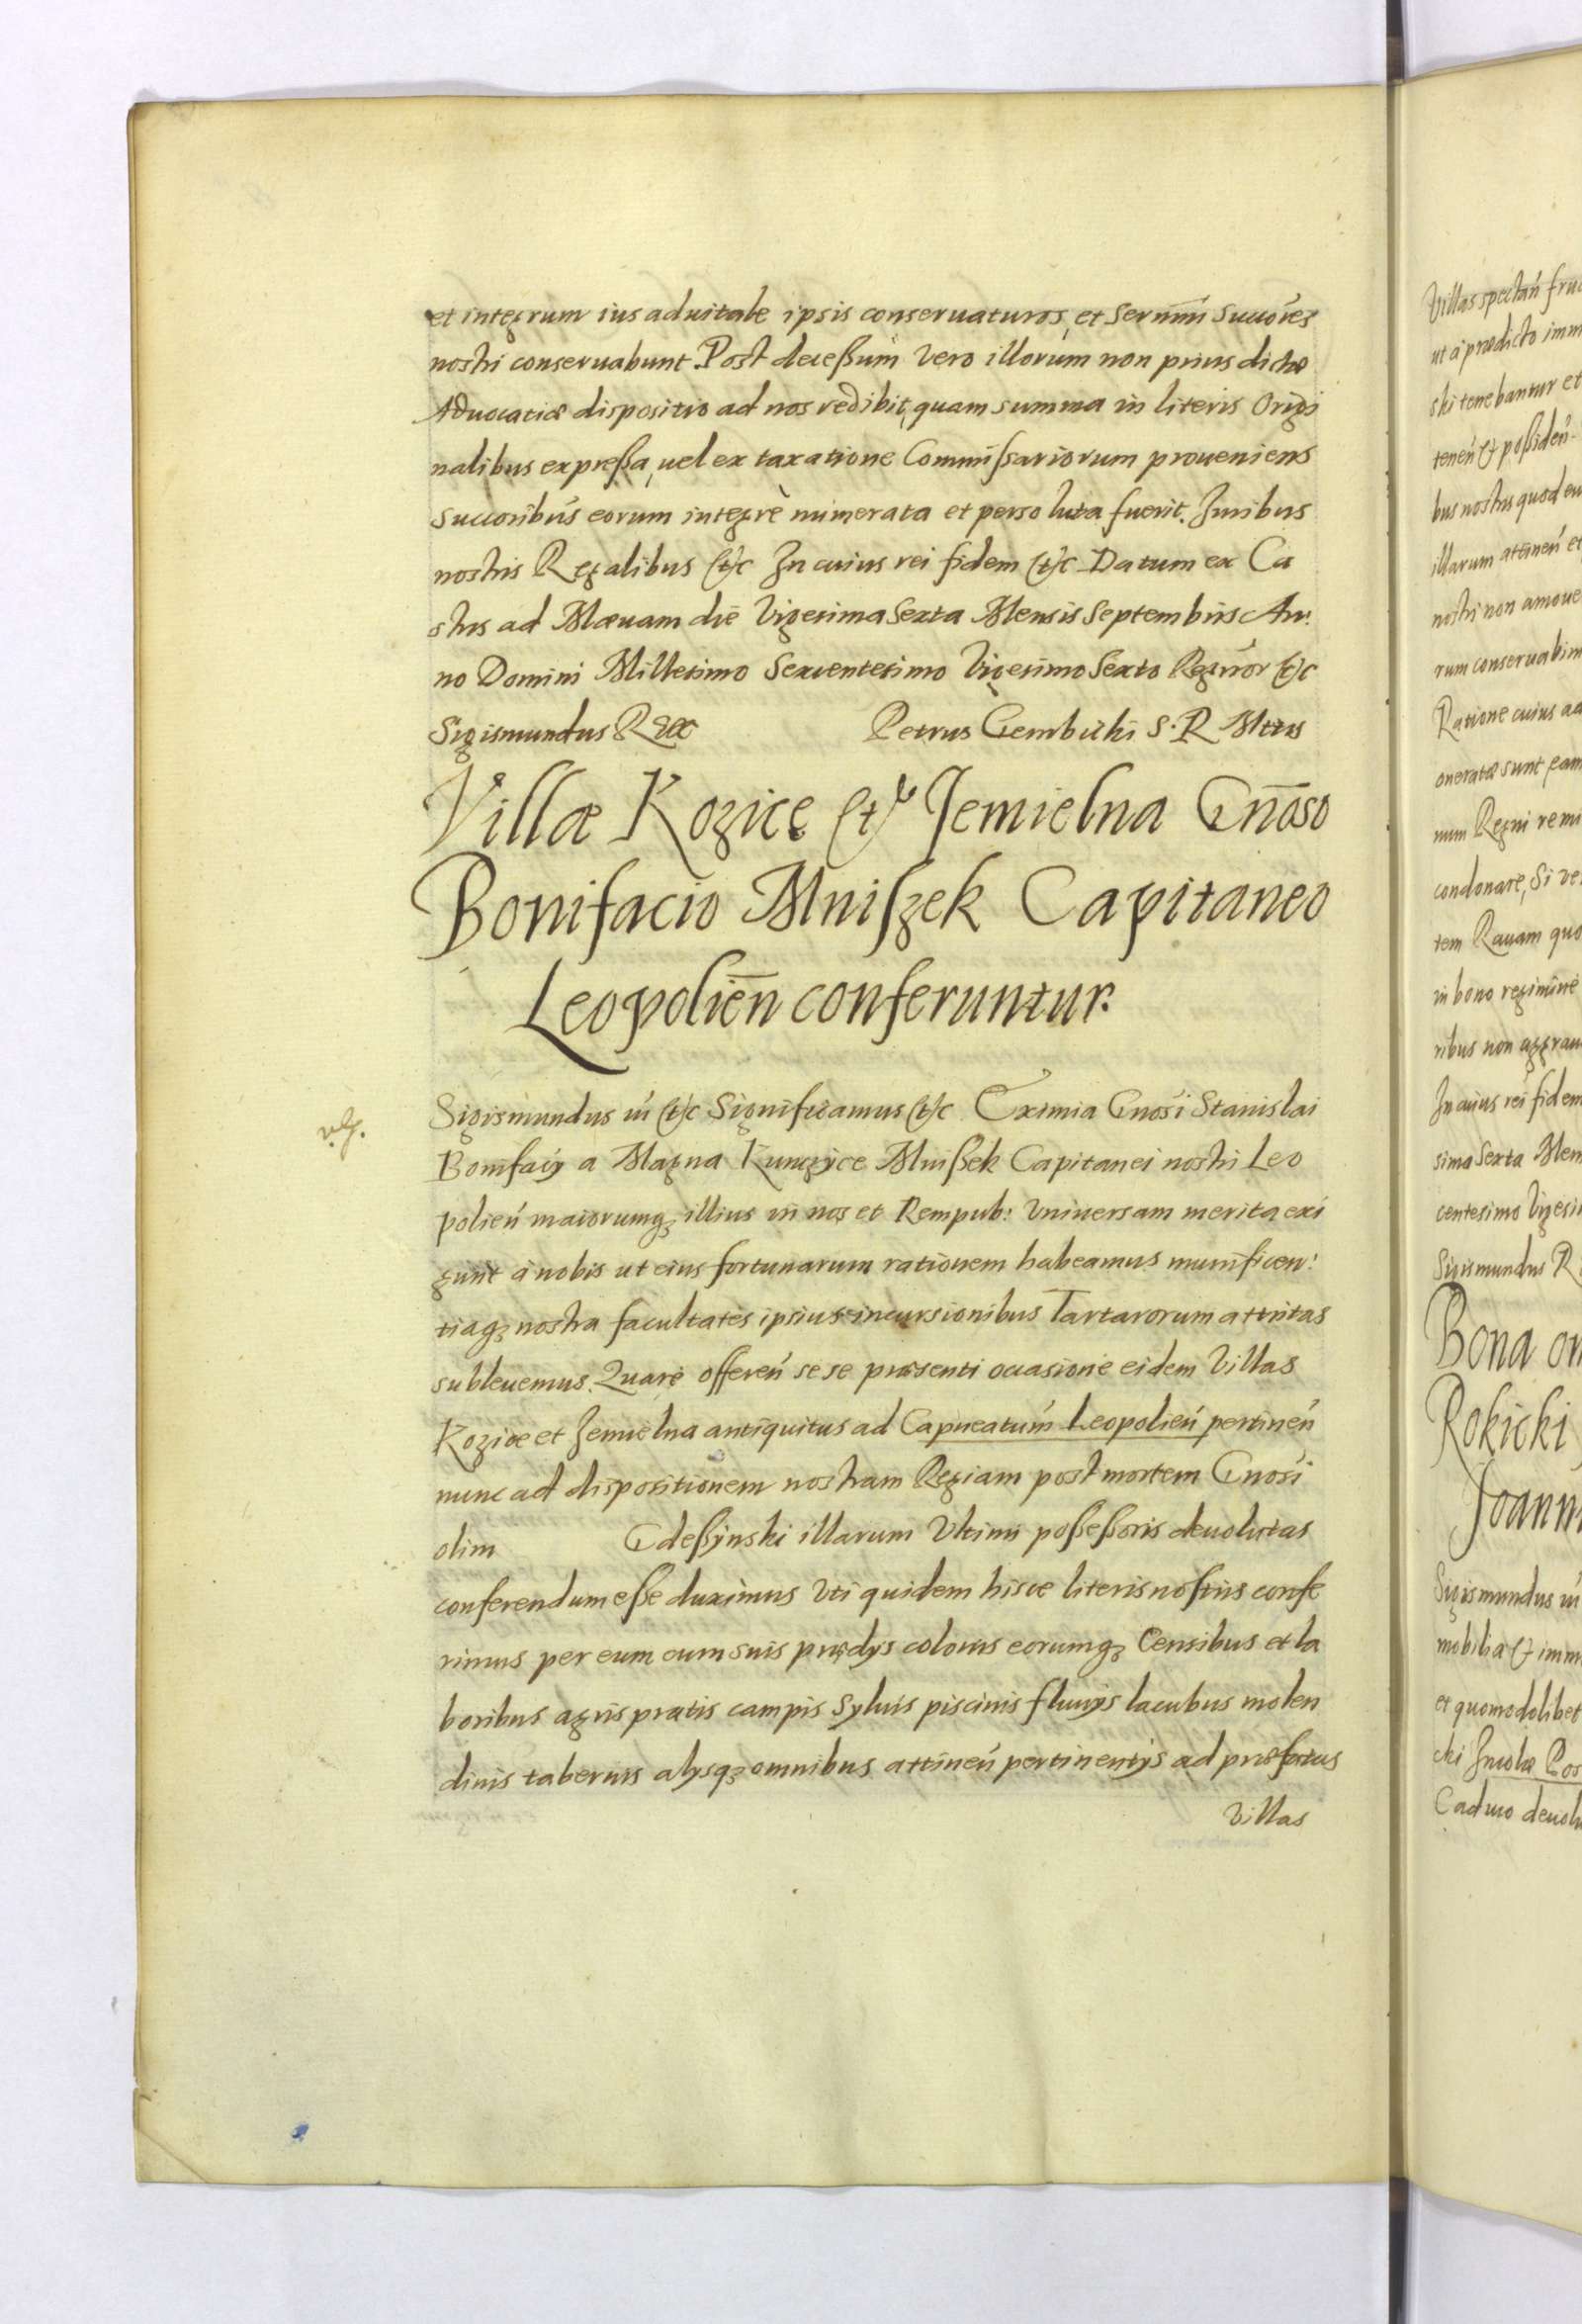 et integrum ius aduitale ipsis conseruaturos, et Sermi Succores
nostri conseruabunt. Post decessum vero illorum non prius dictæ
Aduocatiæ dispositio ad nos redibit, quam summa in literis Origi
nalibus expressa, uel ex taxatione Commissariorum proueniens
succoribus eorum integrè numerata et persoluta fuerit. Iuribus
nostris Regalibus etc In cuius rei fidem etc Datum ex Ca
stris ad Mæuam die Vigesima Sexta Mensis Septembris An
no Domini Millesimo Sexcentesimo Vigesimo Sexto Regnor etc
Sigismundus Rex Petrus Gembicki S. R. Mttis
Villæ Kozice et Jemielna Gnoso
Bonifacio Mniszek Capitaneo
Leopolien conferuntur.
Sigismundus III etc Significamus etc Eximia Gnosi Stanislai
Bonifacij a Magna Kunczyce Mnissek Capitanei nostri Leo
polien maiorumq; illius in nos et Rempub: Vniuersam merita exi
gunt à nobis ut eius fortunarum rationem habeamus munificen:
tiaq; nostra facultates ipsius incursionibus Tartarorum attritas
subleuemus. Quare offeren sese præsenti occasione eidem Villas
Kozice et Jemielna antiquitus ad Capneatum Leopolien pertinen
nunc ad dispositionem nostram Regiam post mortem Gnosi
olim Gdessynski illarum Vltimi possessoris deuolutas
conferendum esse duximus Vti quidem hisce literis nostris confe
rimus per eum cum suis prædys colonis eorumq; Censibus et la
boribus agris pratis campis Syluis piscinis fluuijs lacubus molen
dinis tabernis alysq; omnibus attinen pertinentys ad præfatas
Villas
Villas spectan
ut à prædicto
ski tenebantur et
tenen et possiden
bus nostris quod
illarum attinen et
nostri non
rum
Ratione cuius
oneratæ sunt
num Regni
condonare, Si
tem Rauam
in bono regimine
ribus non
In cuius rei fidem
sima Sexta
centesimo
Sigismundus
Bona
Rokicki
Sigismundus
mobilia et
et quomodolibet
cki
Caduco